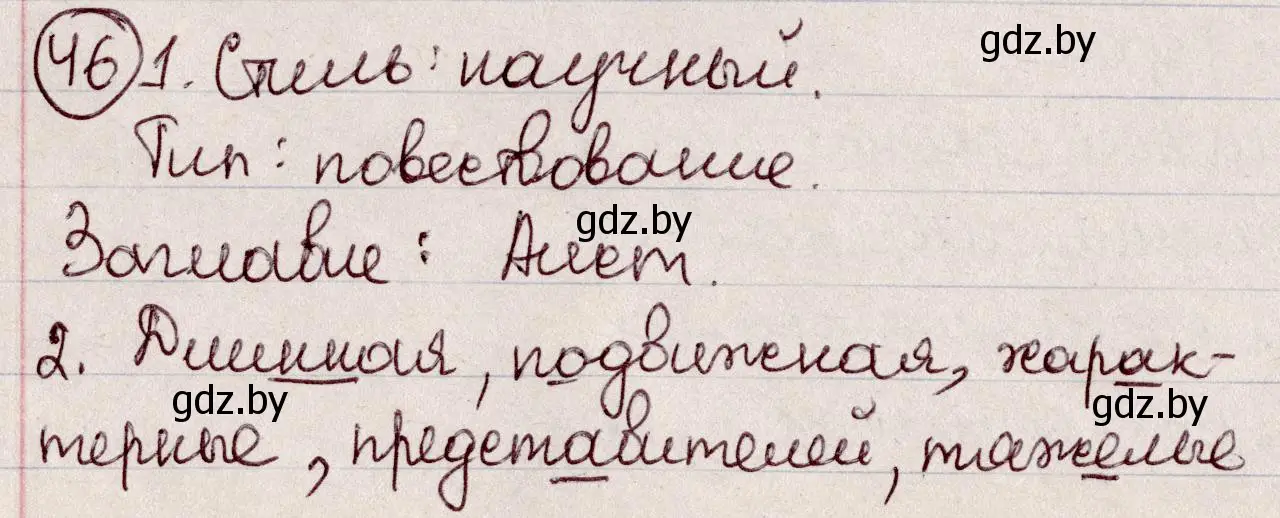 46 1. Стиль: научный. gdz.by
Тип: повествование.
gdz.by
Заглавие: Аист.
2. Длинная, подвижная, харак-
gdz.by gdz.by
терные, представителей, тяжелые